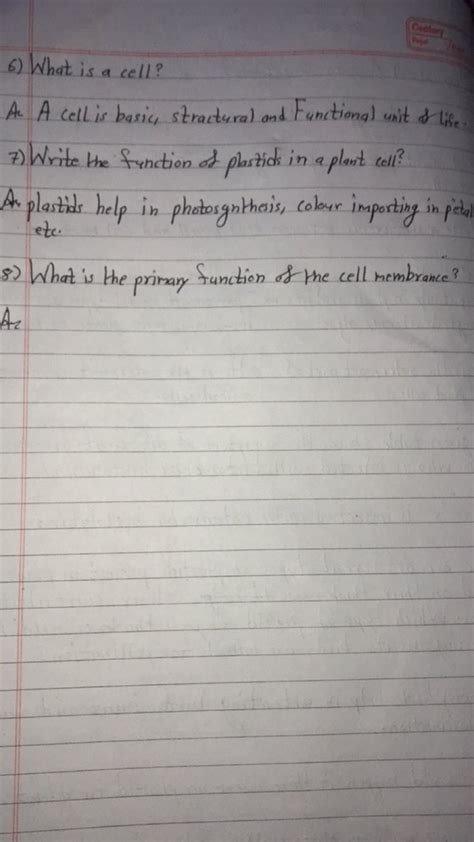 Century
Page
6) What is a cell?
A. A cell is basic, structural and Functional unit of life.
7) Write the function of plastids in a plant cell?
A. plastids help in photosynthesis, colour importing in petal
etc.
8) What is the primary function of the cell membrance?
A.